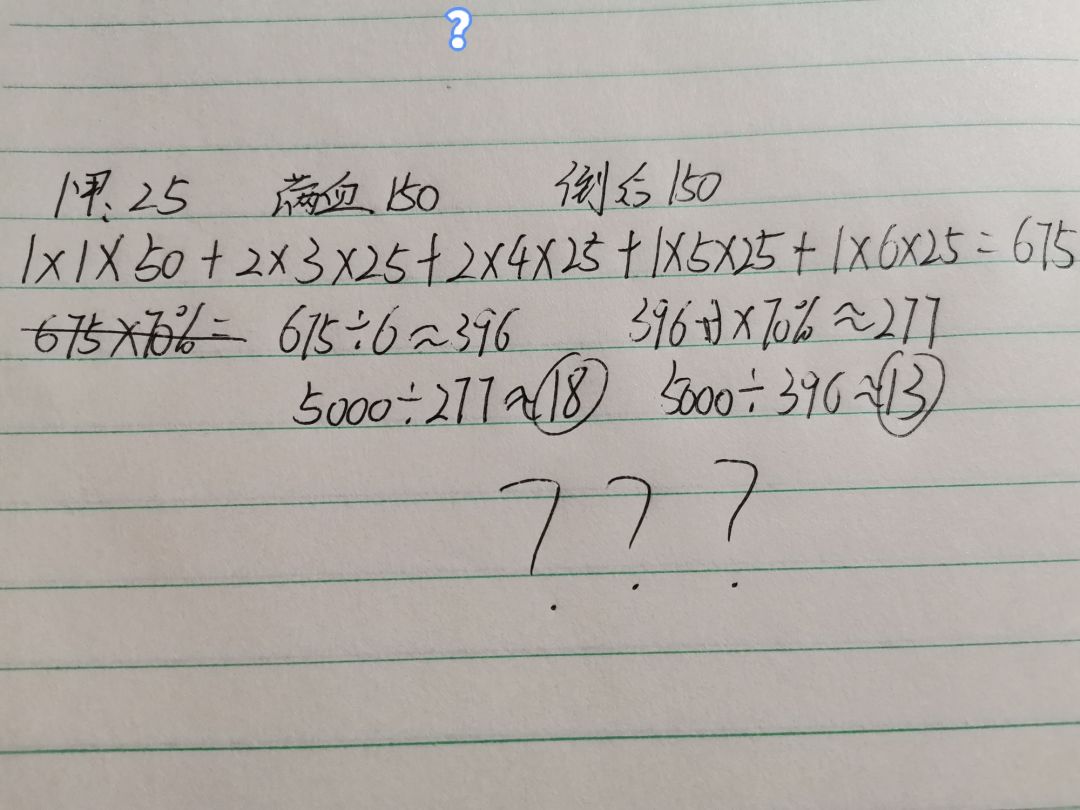 ?
1甲:25 满血150 倒后150
1×1×50+2×3×25+2×4×25+1×5×25+1×6×25=675
675×70%= 675÷6≈396 396×70%≈277
5000÷277≈18 5000÷396≈13
? ? ?